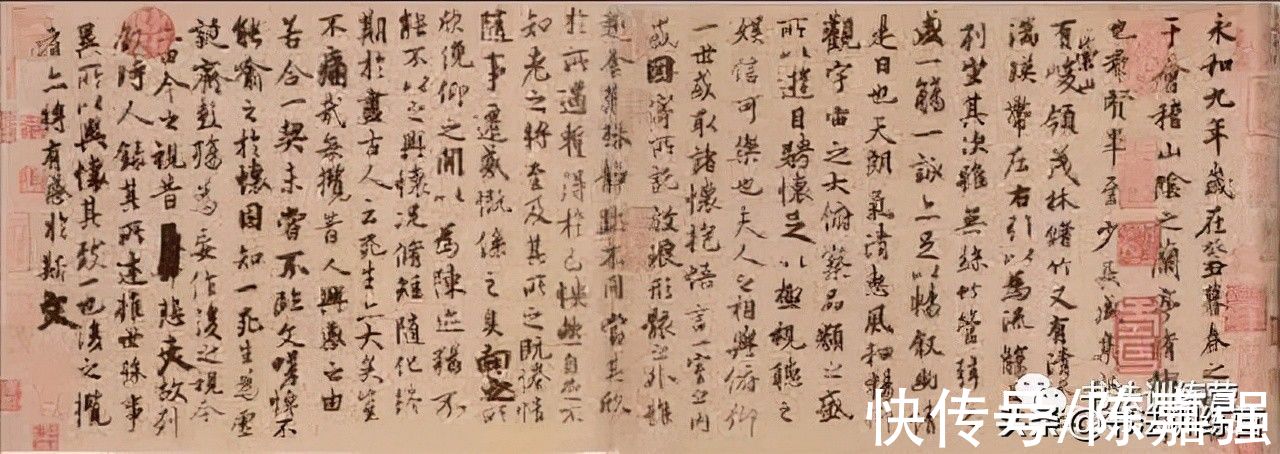 永和九年歲在癸丑暮春之
于會稽山陰之蘭亭脩
也羣賢畢至少長咸集
有崇山峻領茂林脩竹又有清
湍暎帶左右引以為流觴
列坐其次雖無絲竹管弦
盛一觴一詠亦足以暢敘幽情
是日也天朗氣清惠風和暢
觀宇宙之大俯察品類之盛
所以遊目騁懷足以極視聽之
娛信可樂也夫人之相與俯仰
一世或取諸懷抱悟言一室之內
或因寄所託放浪形骸之外雖
趣舍萬殊靜躁不同當其欣
於所遇蹔得於己怏然自足不
知老之將至及其所之既惓情
隨事遷感慨係之矣向之所
欣俛仰之閒以為陳迹猶不
能不以之興懷況脩短隨化終
期於盡古人云死生亦大矣豈
不痛哉每攬昔人興感之由
若合一契未嘗不臨文嗟悼不
能喻之於懷固知一死生為虛
誕齊彭殤為妄作後之視今
亦由今之視昔悲夫故列
敘時人錄其所述雖世殊事
異所以興懷其致一也後之攬
者亦將有感於斯文
书法训练营
快传号/陈嘉强